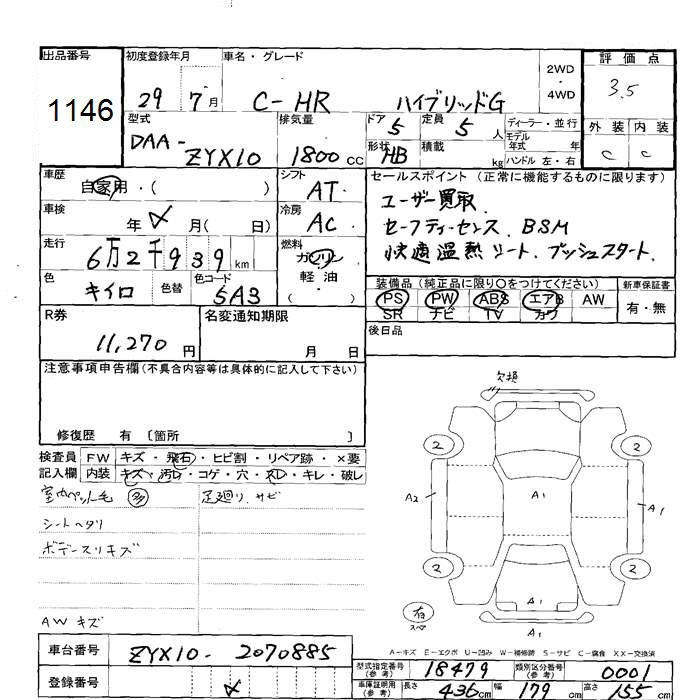 出品番号
1146
初度登録年月
29 7月
車名・グレード
C-HR ハイブリッドG
2WD
・
4WD
評価点
3.5
外装 内装
C C
型式
DAA-
ZYX10
排気量
1800cc
ドア
5
定員
5人
形状
HB
積載
kg
ディーラー・並行
モデル
年式 年
ハンドル 左・右
車歴
自家用・( )
シフト
AT
車検
年 月( 日)
冷房
AC
走行
6万2千939km
燃料
ガソリン
軽油
( )
色
キイロ
色替
色コード
5A3
セールスポイント (正常に機能するものに限ります)
ユーザー買取.
セーフティーセンス. BSM
快適温熱シート. プッシュスタート.
装備品(純正品に限り○をつけてください)
PS PW ABS エアB AW
SR ナビ TV カワ
新車保証書
有・無
後日品
R券
11,270円
名変通知期限
月 日
注意事項申告欄(不具合内容等は具体的に記入して下さい)
修復歴 有 〔箇所 〕
検査員
記入欄
FW キズ・飛石・ヒビ割・リペア跡・×要
内装 キズ・汚レ・コゲ・穴・スレ・キレ・破レ
室内ペット毛 多
足廻り. サビ
シートヘタリ
ボデースリキズ
AWキズ
欠損
2 2
A2 A1 A1
2 2
A1
有
スペア
A1
A-キズ E-エクボ U-凹み W-補修跡 S-サビ C-腐食 XX-交換済
車台番号
ZYX10-2070885
登録番号
型式指定番号
(参考)
18479
類別区分番号
(参考)
0001
車庫証明用
(参考)
長さ 436cm 幅 179cm 高さ 155cm